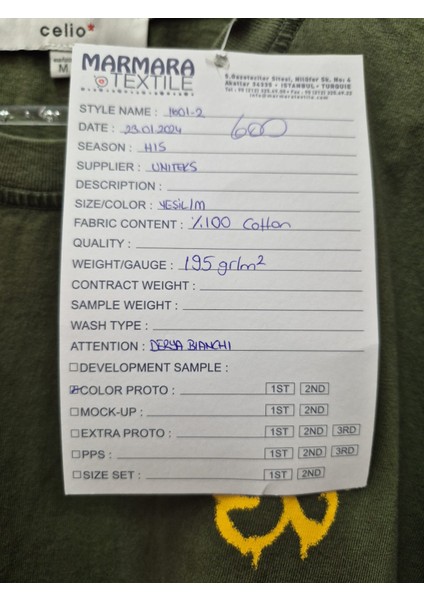 celio*
M
MARMARA
TEXTILE
İSTANBUL - TURQUIE
info@marmaratextile.com
STYLE NAME : 1601-2
DATE : 23.01.2024
600
SEASON : H15
SUPPLIER : UNITEKS
DESCRIPTION :
SIZE/COLOR : YESIL/M
FABRIC CONTENT : %100 Cotton
QUALITY :
WEIGHT/GAUGE : 195 gr/m²
CONTRACT WEIGHT :
SAMPLE WEIGHT :
WASH TYPE :
ATTENTION : DERYA BIANCHI
DEVELOPMENT SAMPLE :
COLOR PROTO : 1ST 2ND
MOCK-UP : 1ST 2ND
EXTRA PROTO : 1ST 2ND 3RD
PPS : 1ST 2ND 3RD
SIZE SET : 1ST 2ND